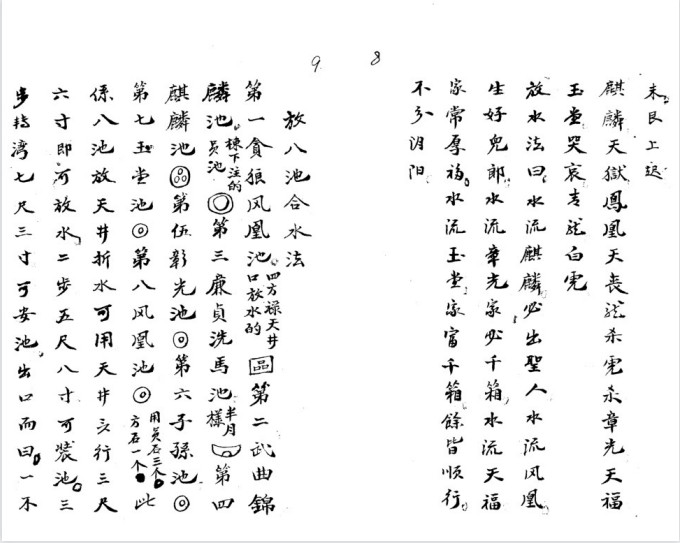 8
未艮上迟
麒麟天獄鳳凰天丧 杀 杀章光天福
玉堂哭哀 白虎
放水法曰水流麒麟必出聖人水流风凰
生好兒郎水流章光家必千箱水流天福
家常厚福水流玉堂家富千箱餘皆順行
不分阴阳
9
放八池合水法
第一貪狼风凰池四方禄天井口放水的 第二武曲錦
麟池员池棟下注的 第三廉貞洗馬池半月樣 第四
麒麟池 第伍彰光池 第六子孫池
第七玉堂池 第八风凰池 用员石三个方石一个 此
係八池放天井折水可用天井 行三尺
六寸即可放水二步五尺八寸可裝池三
步轉湾七尺三寸可安池出口而曰一不